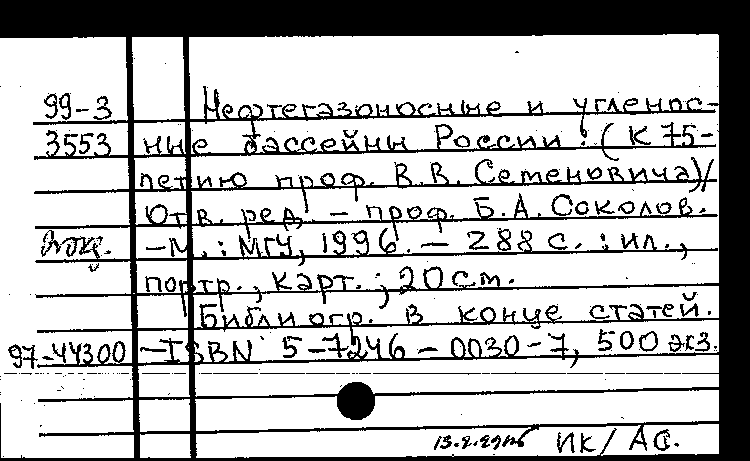 99-3 Нефтегазоносные и угленос-
3553 ные бассейны России: (К 75-
летию проф. В.В. Семеновича)/
Отв. ред. - проф. Б.А. Соколов.
-М.: МГУ, 1996. - 288 с. : ил.,
портр., карт. ; 20 см.
Библиогр. в конце статей.
97-44300 -ISBN 5-7246-0030-7, 500 экз.
ИК/АС.